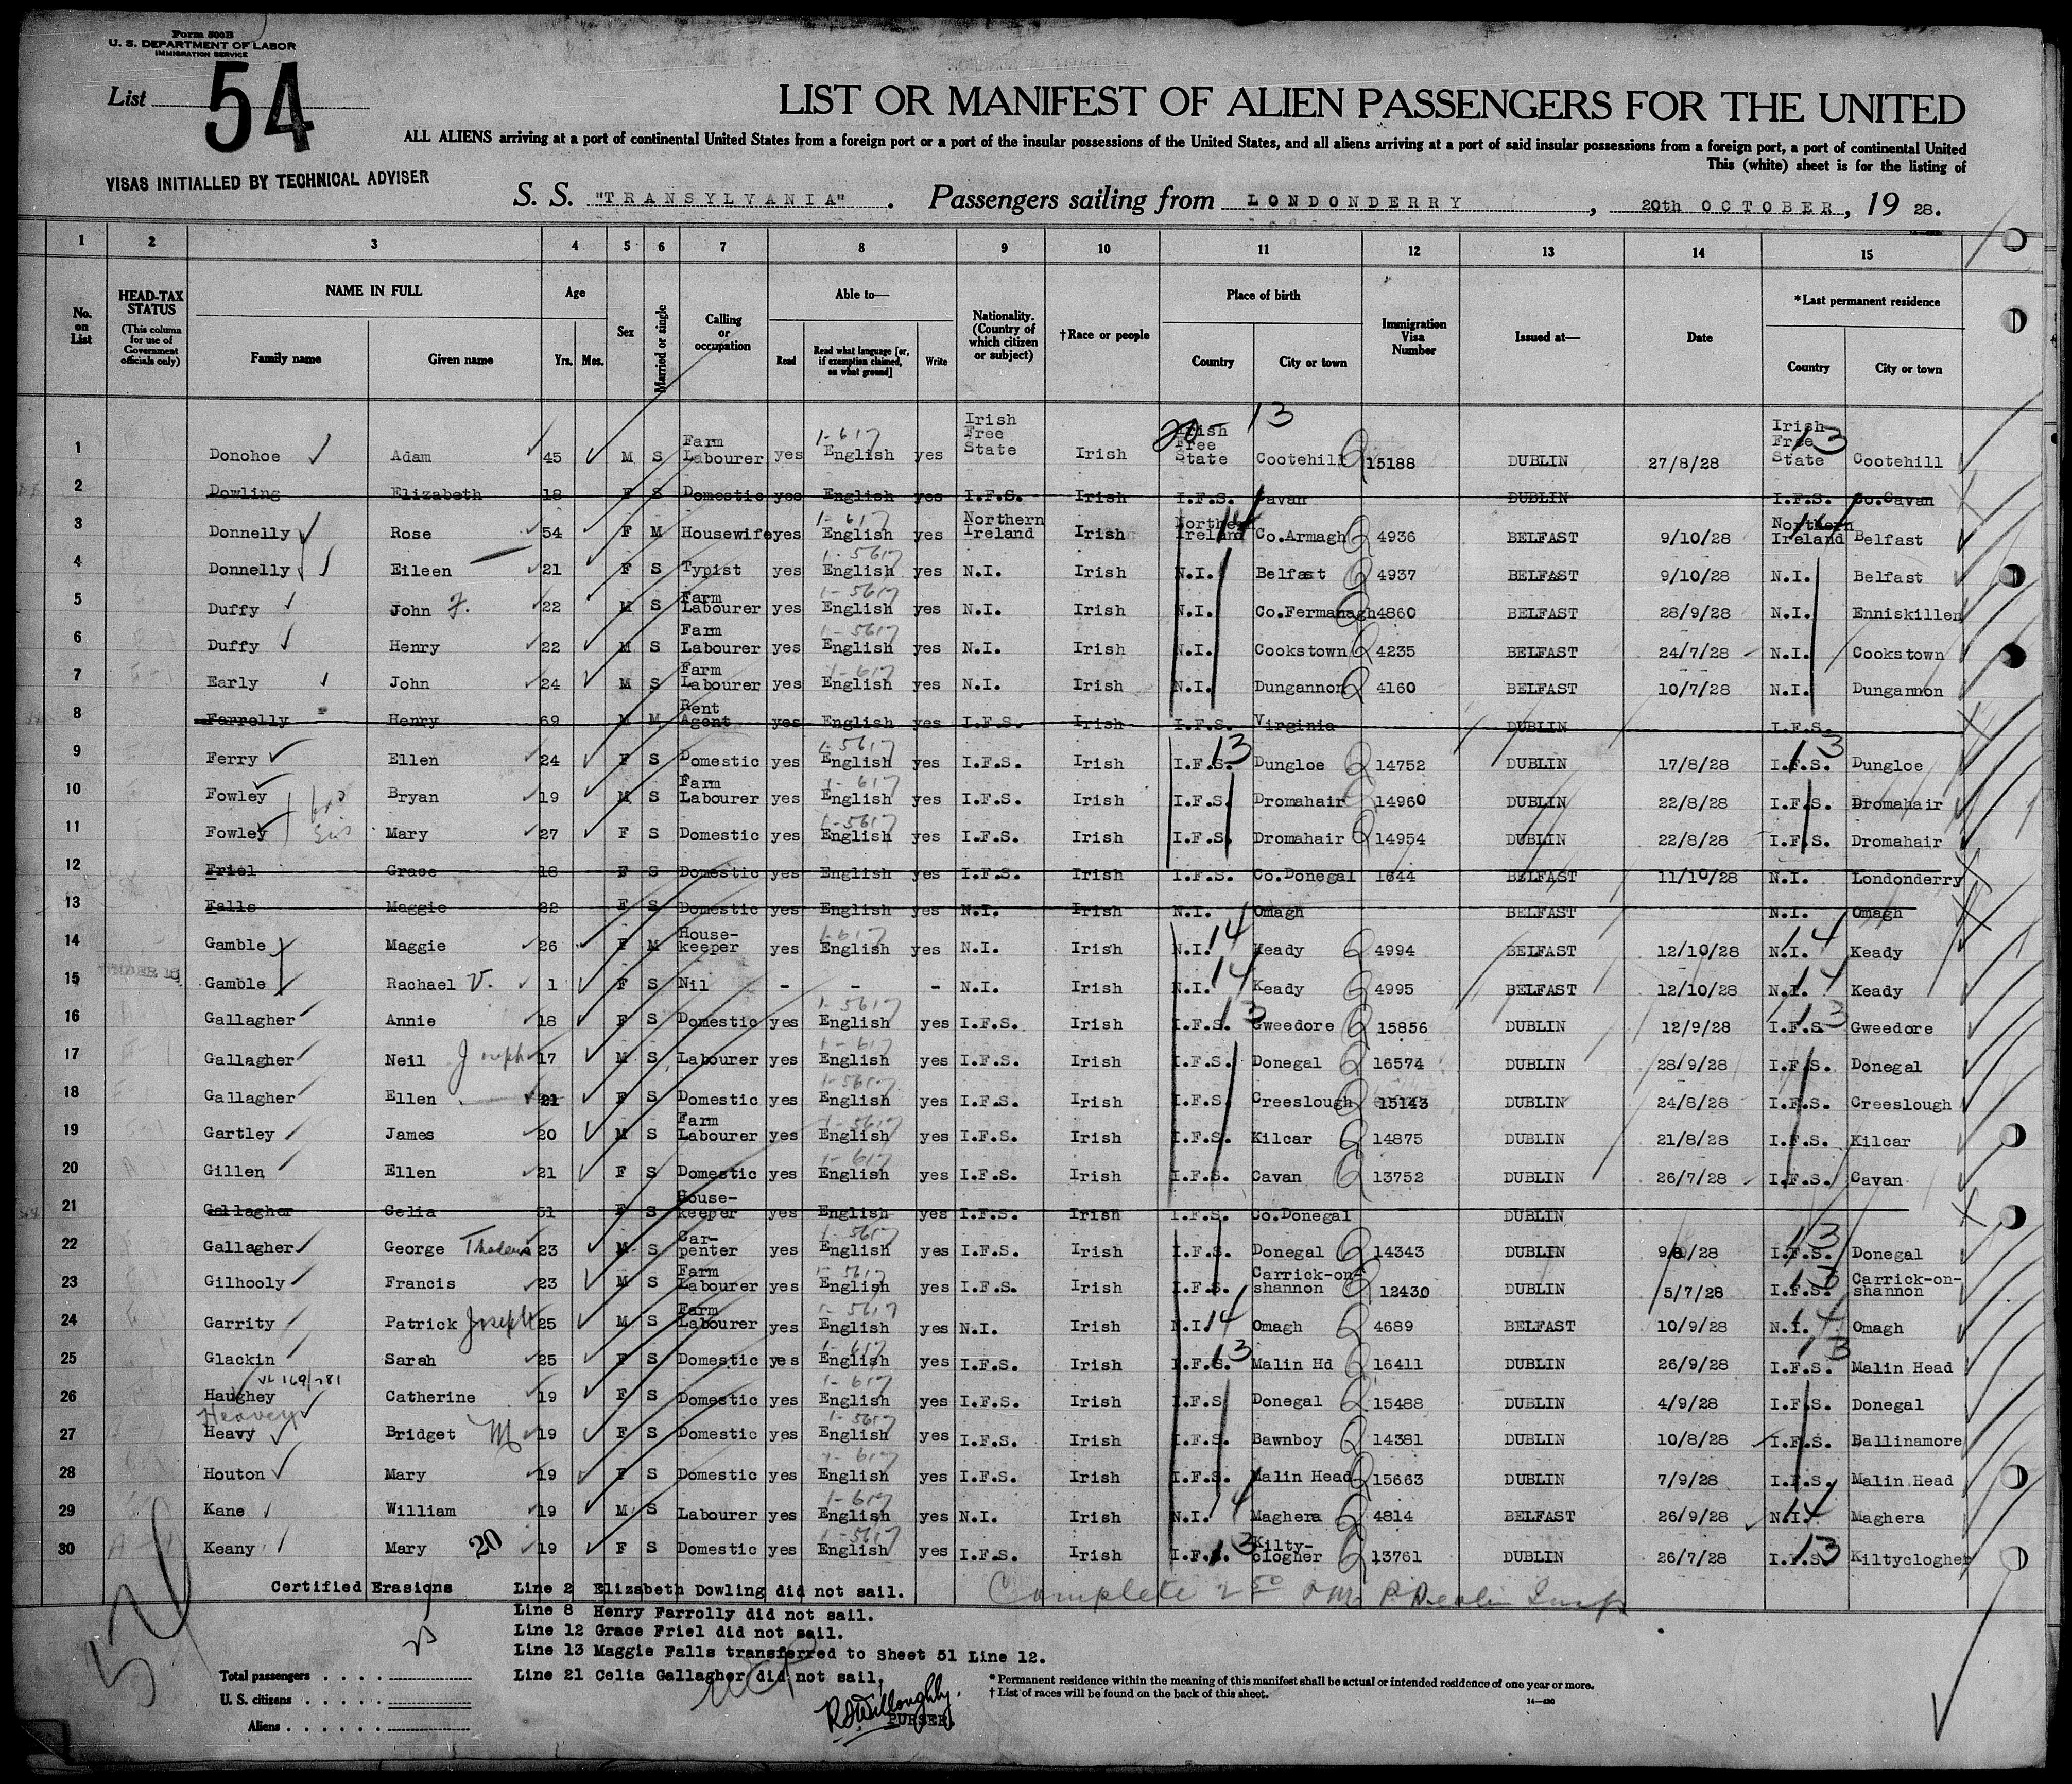 Form 500B
U. S. DEPARTMENT OF LABOR
IMMIGRATION SERVICE
List 54
LIST OR MANIFEST OF ALIEN PASSENGERS FOR THE UNITED
ALL ALIENS arriving at a port of continental United States from a foreign port or a port of the insular possessions of the United States, and all aliens arriving at a port of said insular possessions from a foreign port, a port of continental United
This (white) sheet is for the listing of
VISAS INITIALLED BY TECHNICAL ADVISER
S. S. "TRANSYLVANIA". Passengers sailing from LONDONDERRY, 20th OCTOBER, 19 28.
1 2 3 4 5 6 7 8 9 10 11 12 13 14 15
No. on List
HEAD-TAX STATUS (This column for use of Government officials only)
NAME IN FULL Family name Given name
Age Yrs. Mos.
Sex
Married or single
Calling or occupation
Able to— Read Read what language [or, if exemption claimed, on what ground] Write
Nationality. (Country of which citizen or subject)
†Race or people
Place of birth Country City or town
Immigration Visa Number
Issued at—
Date
*Last permanent residence Country City or town
1 Donohoe Adam 45 M S Farm Labourer yes English yes Irish Free State Irish Irish Free State Cootehill 15188 DUBLIN 27/8/28 Irish Free State Cootehill
2 Dowling Elizabeth 18 F S Domestic yes English yes I.F.S. Irish I.F.S. Cavan DUBLIN I.F.S. Co.Cavan
3 Donnelly Rose 54 F M Housewife yes English yes Northern Ireland Irish Northern Ireland Co.Armagh 4936 BELFAST 9/10/28 Northern Ireland Belfast
4 Donnelly Eileen 21 F S Typist yes English yes N.I. Irish N.I. Belfast 4937 BELFAST 9/10/28 N.I. Belfast
5 Duffy John F. 22 M S Farm Labourer yes English yes N.I. Irish N.I. Co.Fermanagh 4860 BELFAST 28/9/28 N.I. Enniskillen
6 Duffy Henry 22 M S Farm Labourer yes English yes N.I. Irish N.I. Cookstown 4235 BELFAST 24/7/28 N.I. Cookstown
7 Early John 24 M S Farm Labourer yes English yes N.I. Irish N.I. Dungannon 4160 BELFAST 10/7/28 N.I. Dungannon
8 Farrelly Henry 69 M M Rent Agent yes English yes I.F.S. Irish I.F.S. Virginia DUBLIN I.F.S.
9 Ferry Ellen 24 F S Domestic yes English yes I.F.S. Irish I.F.S. 13 Dungloe 14752 DUBLIN 17/8/28 I.F.S. 13 Dungloe
10 Fowley Bryan 19 M S Farm Labourer yes English yes I.F.S. Irish I.F.S. Dromahair 14960 DUBLIN 22/8/28 I.F.S. Dromahair
11 Fowley Mary 27 F S Domestic yes English yes I.F.S. Irish I.F.S. Dromahair 14954 DUBLIN 22/8/28 I.F.S. Dromahair
12 Friel Grace 18 F S Domestic yes English yes I.F.S. Irish I.F.S. Co.Donegal 1644 BELFAST 11/10/28 N.I. Londonderry
13 Falls Maggie 22 F S Domestic yes English yes N.I. Irish N.I. Omagh BELFAST N.I. Omagh
14 Gamble Maggie 26 F M House-keeper yes English yes N.I. Irish N.I. 14 Keady 4994 BELFAST 12/10/28 N.I. 14 Keady
15 UNDER 16 Gamble Rachael V. 1 F S Nil - - - N.I. Irish N.I. 14 Keady 4995 BELFAST 12/10/28 N.I. 14 Keady
16 Gallagher Annie 18 F S Domestic yes English yes I.F.S. Irish I.F.S. 13 Gweedore 15856 DUBLIN 12/9/28 I.F.S. 13 Gweedore
17 Gallagher Neil Joseph 17 M S Labourer yes English yes I.F.S. Irish I.F.S. Donegal 16574 DUBLIN 28/9/28 I.F.S. Donegal
18 Gallagher Ellen 21 F S Domestic yes English yes I.F.S. Irish I.F.S. Creeslough 15143 DUBLIN 24/8/28 I.F.S. Creeslough
19 Gartley James 20 M S Farm Labourer yes English yes I.F.S. Irish I.F.S. Kilcar 14875 DUBLIN 21/8/28 I.F.S. Kilcar
20 Gillen Ellen 21 F S Domestic yes English yes I.F.S. Irish I.F.S. Cavan 13752 DUBLIN 26/7/28 I.F.S. Cavan
21 Gallagher Celia 51 F S House-keeper yes English yes I.F.S. Irish I.F.S. Co.Donegal DUBLIN
22 Gallagher George 23 M S Car-penter yes English yes I.F.S. Irish I.F.S. Donegal 14343 DUBLIN 9/8/28 I.F.S. 13 Donegal
23 Gilhooly Francis 23 M S Farm Labourer yes English yes I.F.S. Irish I.F.S. Carrick-on-shannon 12430 DUBLIN 5/7/28 I.F.S. 13 Carrick-on-shannon
24 Garrity Patrick Joseph 25 M S Farm Labourer yes English yes N.I. Irish N.I. 14 Omagh 4689 BELFAST 10/9/28 N.I. 14 Omagh
25 Glackin Sarah 25 F S Domestic yes English yes I.F.S. Irish I.F.S. 13 Malin Hd 16411 DUBLIN 26/9/28 I.F.S. 13 Malin Head
26 Haughey Catherine 19 F S Domestic yes English yes I.F.S. Irish I.F.S. Donegal 15488 DUBLIN 4/9/28 I.F.S. Donegal
Heavey
27 Heavy Bridget M 19 F S Domestic yes English yes I.F.S. Irish I.F.S. Bawnboy 14381 DUBLIN 10/8/28 I.F.S. Ballinamore
28 Houton Mary 19 F S Domestic yes English yes I.F.S. Irish I.F.S. Malin Head 15663 DUBLIN 7/9/28 I.F.S. Malin Head
29 Kane William 19 M S Labourer yes English yes N.I. Irish N.I. Maghera 4814 BELFAST 26/9/28 N.I. 14 Maghera
30 Keany Mary 20 19 F S Domestic yes English yes I.F.S. Irish I.F.S. 13 Kilty-clogher 13761 DUBLIN 26/7/28 I.F.S. 13 Kiltyclogher
Certified Erasions Line 2 Elizabeth Dowling did not sail.
Line 8 Henry Farrolly did not sail.
Line 12 Grace Friel did not sail.
Line 13 Maggie Falls transferred to Sheet 51 Line 12.
Line 21 Celia Gallagher did not sail.
Complete
Total passengers . . . .
U. S. citizens . . . . .
Aliens . . . . . .
R.S. Willoughby.
PURSER.
* Permanent residence within the meaning of this manifest shall be actual or intended residence of one year or more.
† List of races will be found on the back of this sheet.
14—430